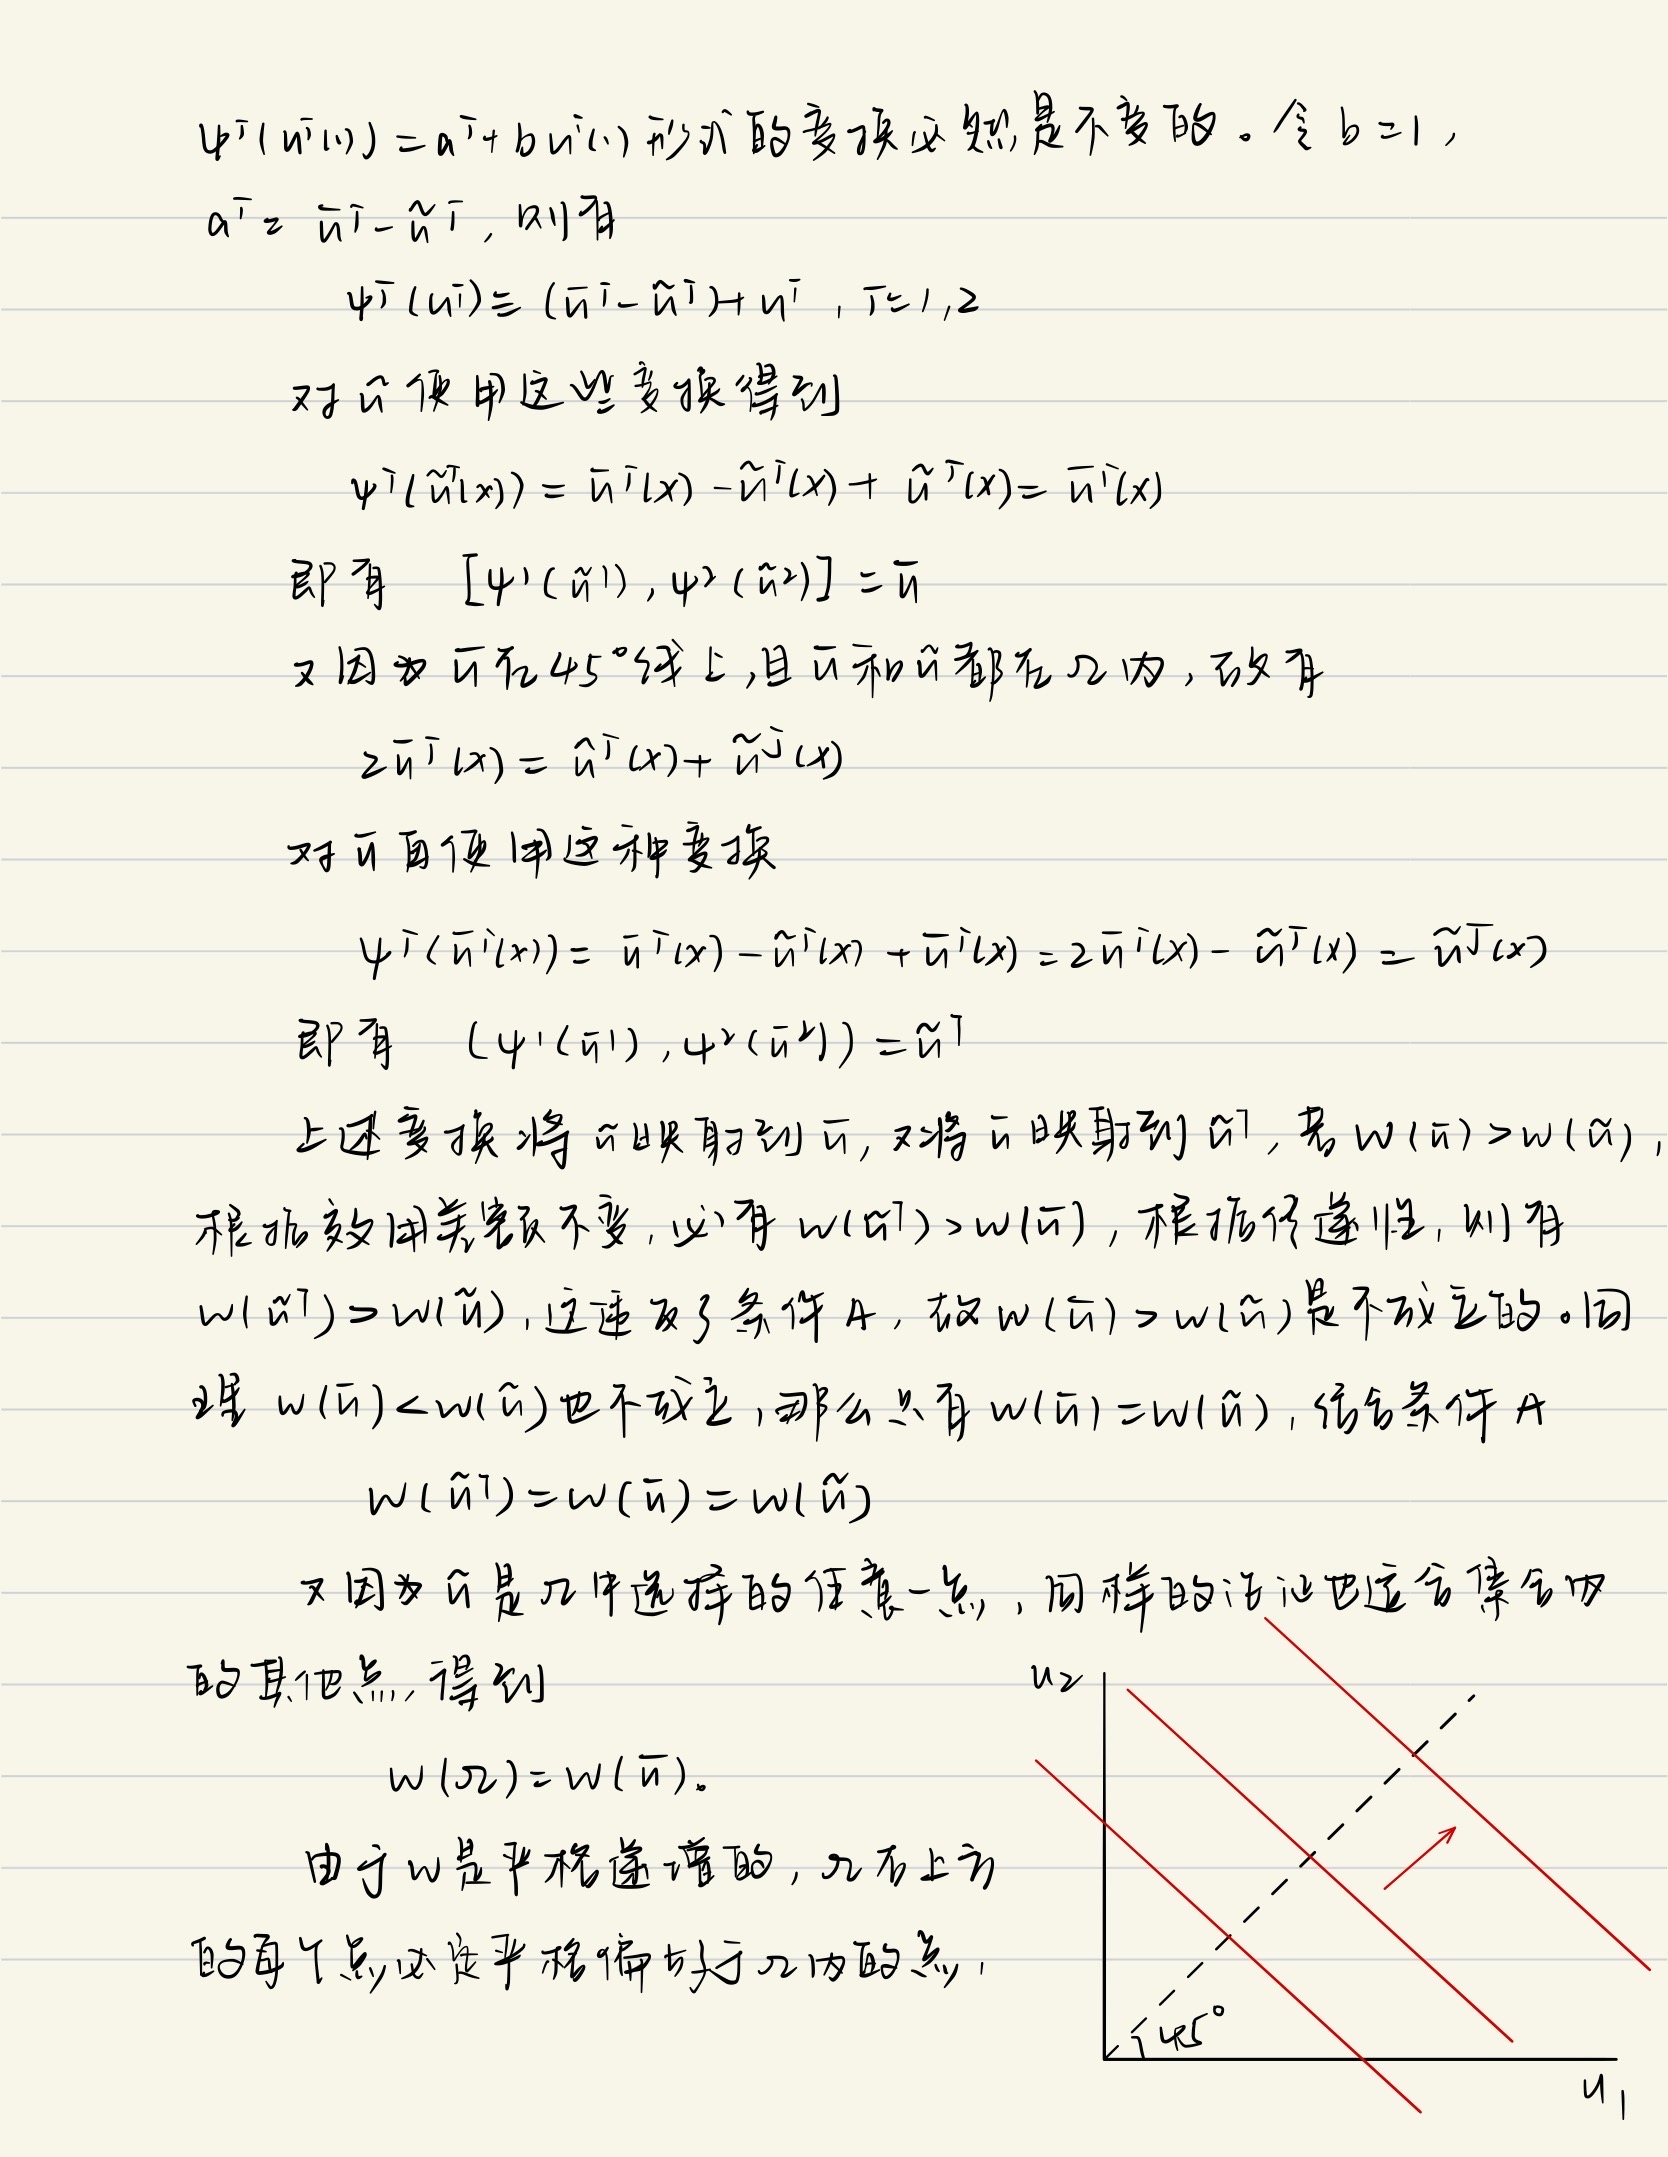 ψⁱ(uⁱ(·)) = aⁱ + buⁱ(·) 形式的变换必然是不变的。令 b = 1,
aⁱ = ūⁱ - ũⁱ, 则有
ψⁱ(uⁱ) ≡ (ūⁱ - ũⁱ) + uⁱ , i = 1, 2
对 ũ 使用这些变换得到
ψⁱ(ũⁱ(x)) = ūⁱ(x) - ũⁱ(x) + ũⁱ(x) = ūⁱ(x)
即有 [ψ¹(ũ¹), ψ²(ũ²)] = ū
又因为 ū 在 45° 线上, 且 ū 和 ũ 都在 Ω 内, 故有
2ūⁱ(x) = ũⁱ(x) + ũʲ(x)
对 ū 再使用这种变换
ψⁱ(ūⁱ(x)) = ūⁱ(x) - ũⁱ(x) + ūⁱ(x) = 2ūⁱ(x) - ũⁱ(x) = ũʲ(x)
即有 (ψ¹(ū¹), ψ²(ū²)) = ũᵀ
上述变换将 ũ 映射到 ū, 又将 ū 映射到 ũᵀ, 若 W(ū) > W(ũ),
根据效用差额不变, 必有 W(ũᵀ) > W(ū), 根据传递性, 则有
W(ũᵀ) > W(ũ), 这违反了条件 A, 故 W(ū) > W(ũ) 是不成立的。同
理 W(ū) < W(ũ) 也不成立, 那么只有 W(ū) = W(ũ), 结合条件 A
W(ũᵀ) = W(ū) = W(ũ)
又因为 ũ 是 Ω 中选择的任意一点, 同样的论证也适合集合内
的其他点, 得到
W(Ω) = W(ū)。
由于 W 是严格递增的, Ω 右上方
的每个点必定严格偏好于 Ω 内的点,
u₂
45°
u₁